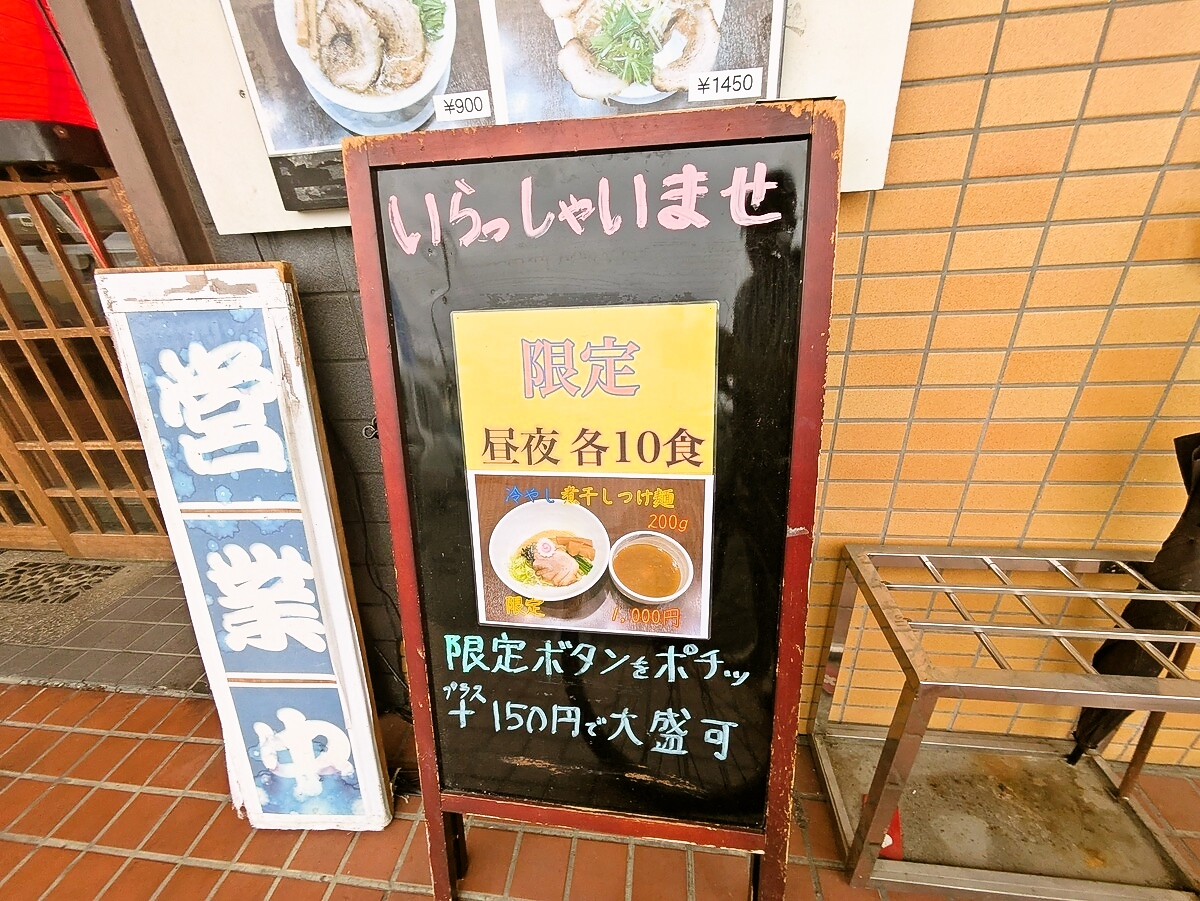 ¥900
¥1450
いらっしゃいませ
限定
昼夜 各10食
冷やし煮干しつけ麺
200g
限定
1,000円
限定ボタンをポチッ
プラス
+150円で大盛可
営業中